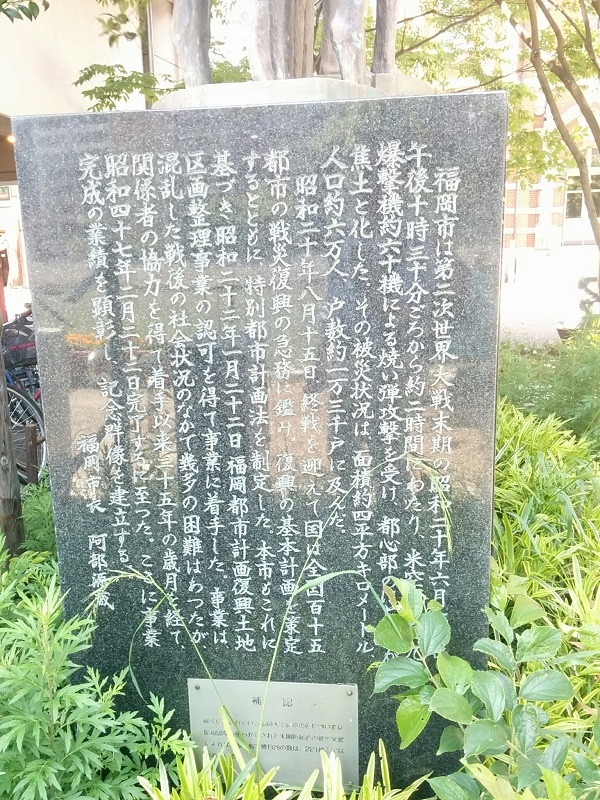 福岡市は第二次世界大戦末期の昭和二十年六月
午後十時三十分ごろから約二時間にわたり、米空
爆撃機約六十機による焼い弾攻撃を受け、都心部の
焦土と化した。その被災状況は、面積約四平方キロメートル
人口約六万人、戸数約一万三千戸に及んだ。
昭和二十年八月十五日終戦を迎えて国は全国百十五
都市の戦災復興の急務に鑑み、復興の基本計画を策定
するとともに特別都市計画法を制定した。本市もこれに
基づき昭和二十二年一月二十二日福岡都市計画復興土地
区画整理事業の認可を得て事業に着手した。事業は、
混乱した戦後の社会状況のなかで幾多の困難はあつたが
関係者の協力を得て着手以来二十五年の歳月を経て、
昭和四十七年二月二十二日完了するに至つた。ここに事業
完成の業績を顕彰し、記念群像を建立する。
福岡市長 阿部源蔵
補記